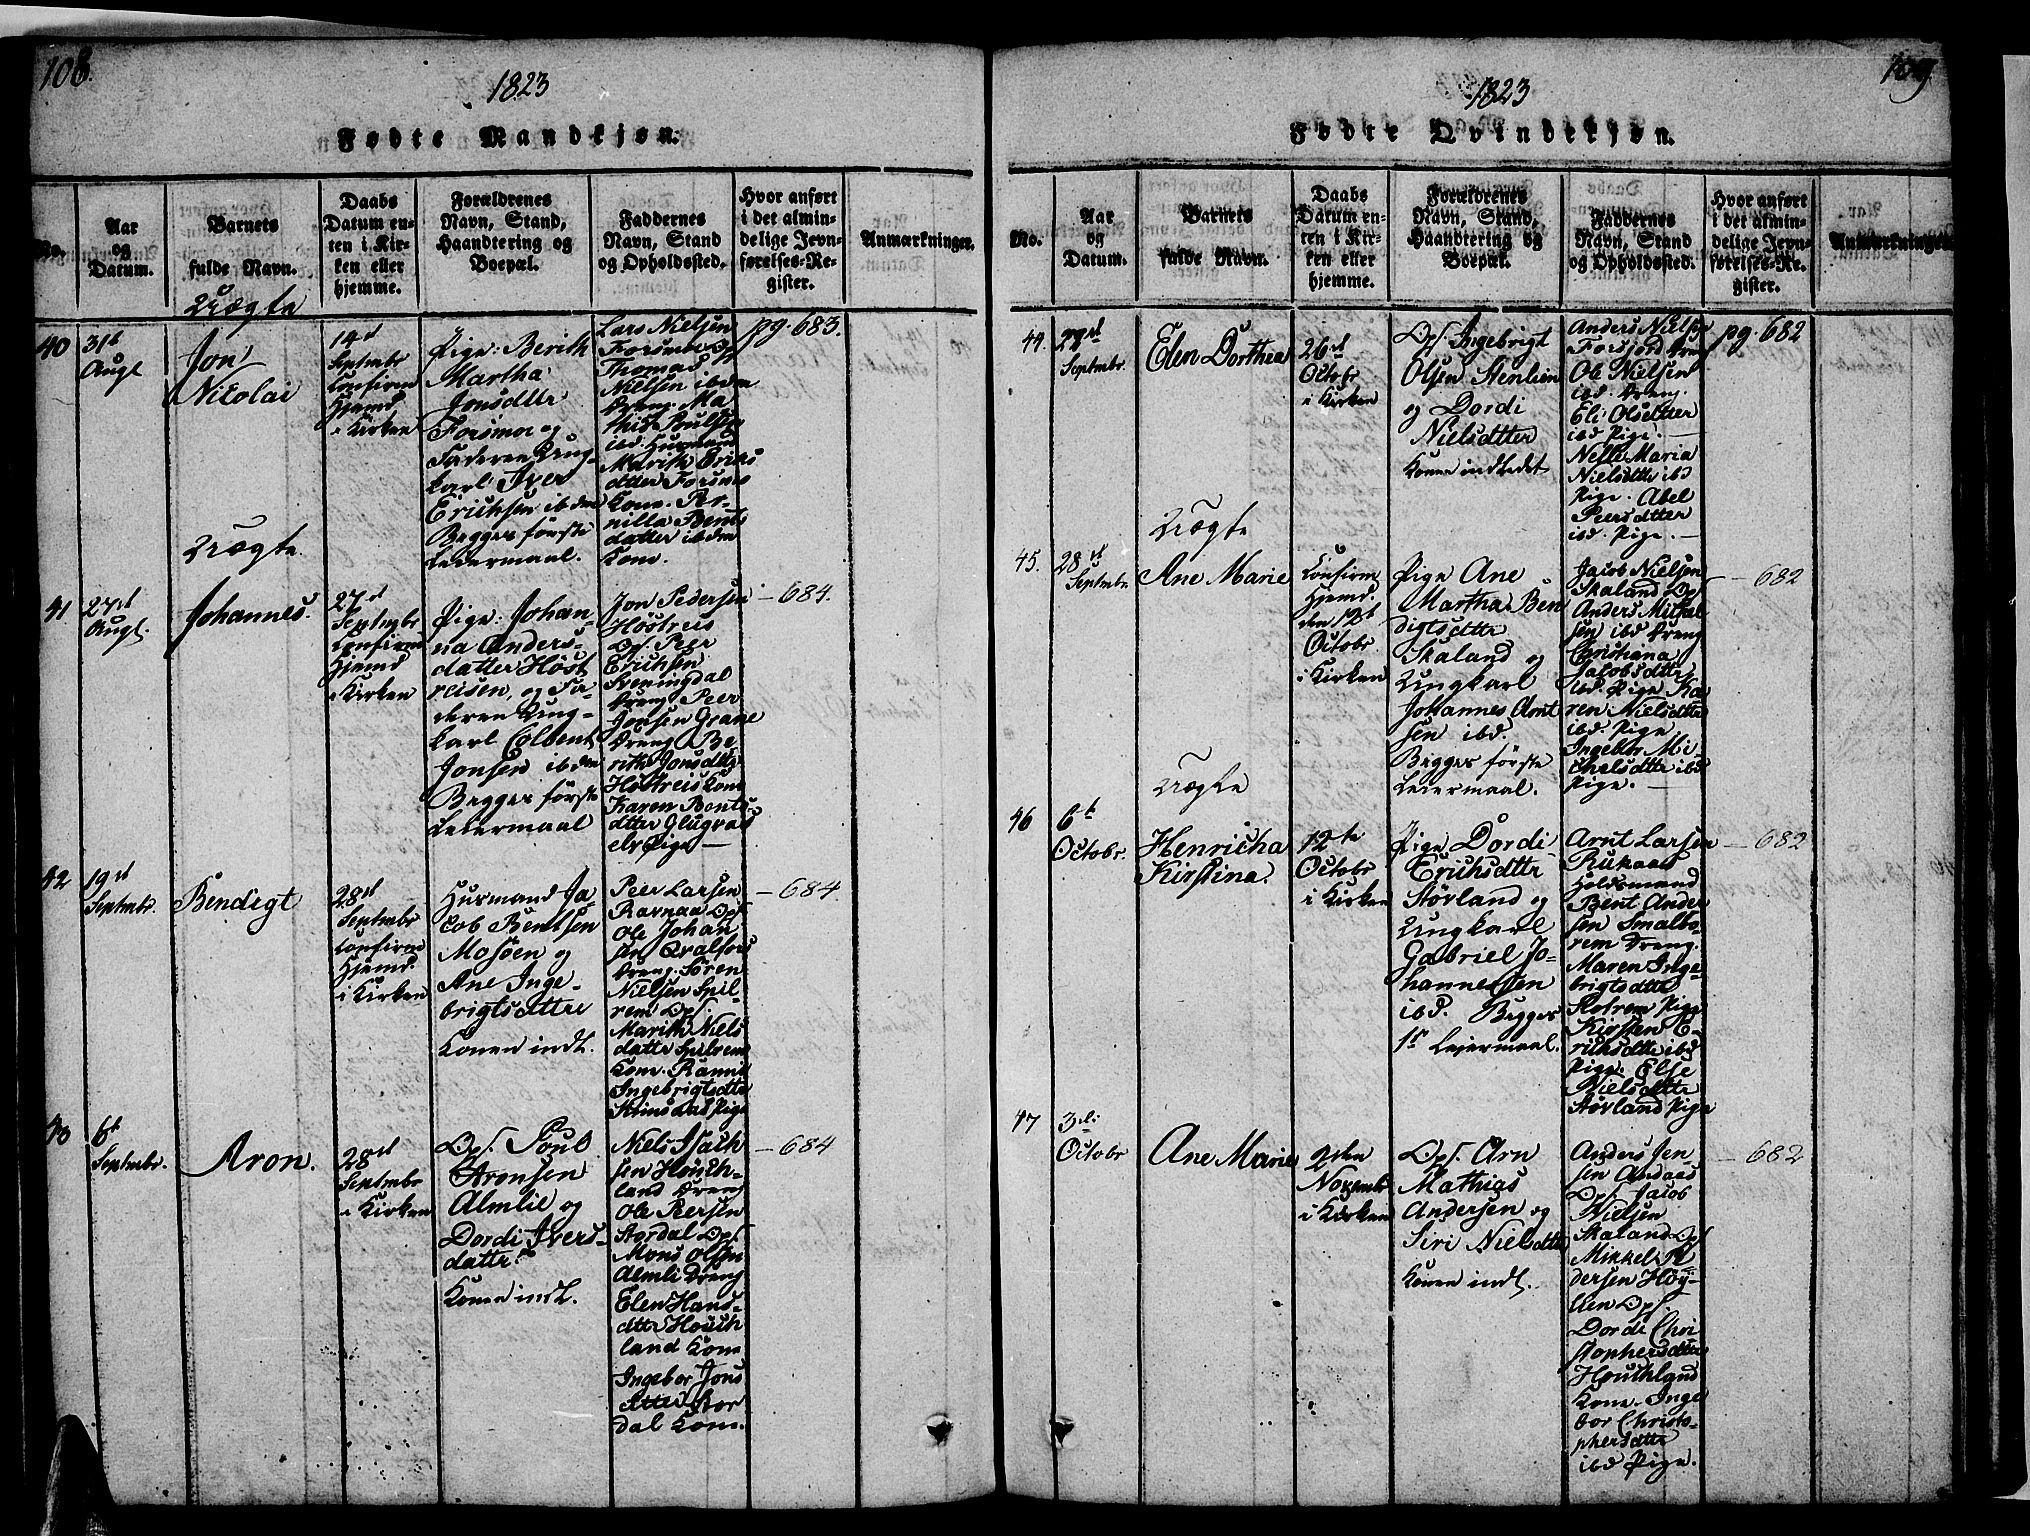 108.
1823
Fødte Mandkjøn.
No.
Aar
og
Datum.
Barnets
fulde Navn.
Daabs
Datum en-
ten i Kir-
ken eller
hjemme.
Forældrenes
Navn, Stand,
Haandtering og
Boepæl.
Faddernes
Navn, Stand
og Opholdssted.
Hvor anført
i det almin-
delige Jevn-
førelses-Re-
gister.
Anmærkninger.
Uægte
40
31t
Augt
Jon
Nicolai
14de
Septembr
Confirm
Hjemd
i Kirken
Pige Berith
Martha
Jonsdtter
Forsmo og
Faderen Ung-
karl Iver
Erichsen ibdem
Begges første
Leiermaal.
Lars Nielsen
Forsmo Op.
Thomas
Nielsen ibdem
Dreng. Ma
this Poulse
ibd. Husmand
Marith Erics
dtter Forsmo
Kone. Per-
nilla Bents
datter ibdem
Kone.
pg. 683.
Uægte
41
27de
Augt.
Johannes.
27de
Septembr
Confirm
Hjemd
i Kirken
Pige Johan-
na Anders-
datter Høst
reisen, og Fa-
deren Ung-
karl Colbent
Jonsen ibdem
Begges første
Leiermaal
Jon Pedersen
Høstreis
Op. Peer
Erichsen
Sveningdal
Dreng Peer
Jonsen Grane
Dreng Be
rithe Jonsdtter
Høstreis Kone
Karen Bents
dtter Glugvas
elv Pige —
— 684.
42
19de
Septembr.
Bendigt
28de
Septembr
Confirm
Hjemd.
i Kirken
Husmand Ja
cob Bentsen
Mosøen og
Ane Inge-
brigtsdtter
Konen indl.
Peer Larsen
Ravnaa Ops.
Ole Johan
sen Qvalfors
Dreng. Søren
Nielsen Spil-
rem Ops.
Marith Niels
datter Spilrem
Kone. Ranna
Ingebrigtsdtter
Pige
— 684.
43
6t
Septembr.
Aron.
28de
Septembr
i Kirken
Ops. Poul
Aronsen
Almlie og
Dordi Ivers-
datter
Konen indl.
Niels Isach
sen Houth-
land Dreng
Ole Peersen
Stordal Ops.
Mons Olsen
Almli Dreng
Elen Hans-
dtter Houth
land Kone
Ingebor Jons
dtter Stor
dal Kone.
— 684
109
1823
Fødte Qvindekjøn.
No.
Aar
og
Datum.
Barnets
fulde Navn.
Daabs
Datum en-
ten i Kir-
ken eller
hjemme.
Forældrenes
Navn, Stand,
Haandtering og
Boepæl.
Faddernes
Navn, Stand
og Opholdssted.
Hvor anført
i det almin-
delige Jevn-
førelses-Re-
gister.
Anmærkninger.
44.
Septembr.
Elen Dorthea
26de
Octobr
i Kirken
Ops. Ingebrigt
Olsen Stenlien
og Dordi
Nielsdtter
Konen indledet
Anders Nielsen
Forsjord Dreng
Ole Nielsen
ibd. Dreng.
Eli Olsdtter
ibd Pige. —
Nelle Maria
Nielsdtter ibd
Pige. Abel
Peersdtter
ibd. Pige. —
pg. 682
Uægte
45.
28de
Septembr.
Ane Marie
Confirm
Hjemd.
den 12t
Octobr
i Kirken
Pige Ane
Martha Ben
digtsdtter
Skaland og
Ungkarl
Johannes Arnt
sen ibd.
Begges første
Leiermaal.
Jacob Nielsen
Skaland Op.
Anders Michal
sen ibd Dreng
Christiana
Jacobsdtter
ibd. Pige Ka
ren Nielsdtter
ibd. Pige
Ingebor Mi
chelsdtter ibd
Pige. —
— 682
Uægte
46
6t
Octobr.
Henricha
Kirstina.
12te
Octobr
i Kirken
Pige Dordi
Erichsdtter
Størland og
Ungkarl
Gabriel Jo-
hannessen
ibd. Begges
1s Lejermaal.
Arnt Larsen
Rukaas
Holdsmand
Bent Ander
sen Smalbo-
rem Dreng.
Maren Inge-
brigtsdtter
Slotrem Pige
Kirsten E-
richsdtter ibd
Pige. Else
Nielsdtter
Størland Pige
— 682
47
3die
Octobr
Ane Marie
2den
Novembr
i Kirken
Ops. Arn
Mathias
Andersen og
Siri Nielsdtter
Konen indl.
Anders Jen
sen Andaas
Ops. Jacob
Nielsen
Skaland Op.
Mikkel A
dersen Høy-
en Ops.
Dordi Chri
stophersdtter
Houthland
Kone. Inge
bor Christo-
phersdtter
ibd Pige.
— 682